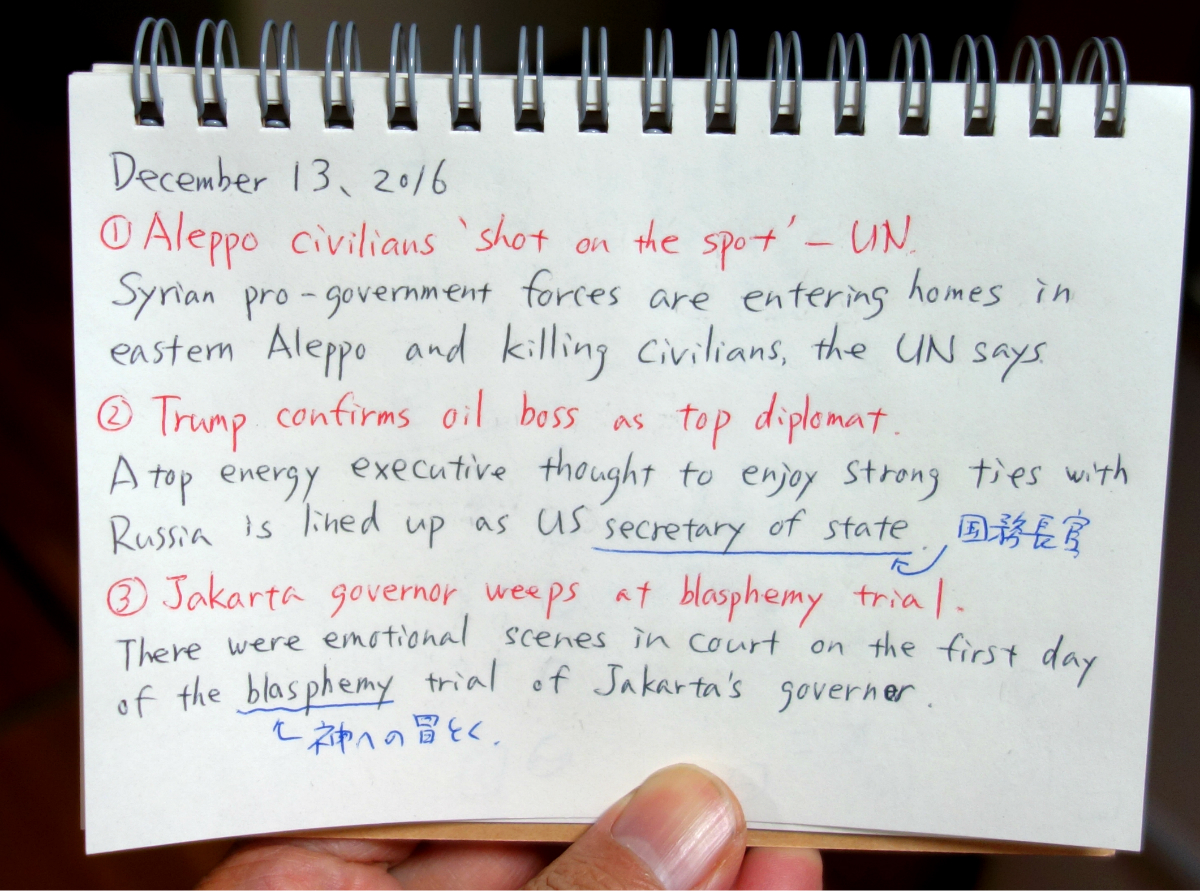 December 13、2016
① Aleppo civilians 'shot on the spot' – UN.
Syrian pro-government forces are entering homes in
eastern Aleppo and killing civilians, the UN says.
② Trump confirms oil boss as top diplomat.
A top energy executive thought to enjoy strong ties with
Russia is lined up as US secretary of state. 国務長官
③ Jakarta governor weeps at blasphemy trial.
There were emotional scenes in court on the first day
of the blasphemy trial of Jakarta's governer.
神への冒とく.